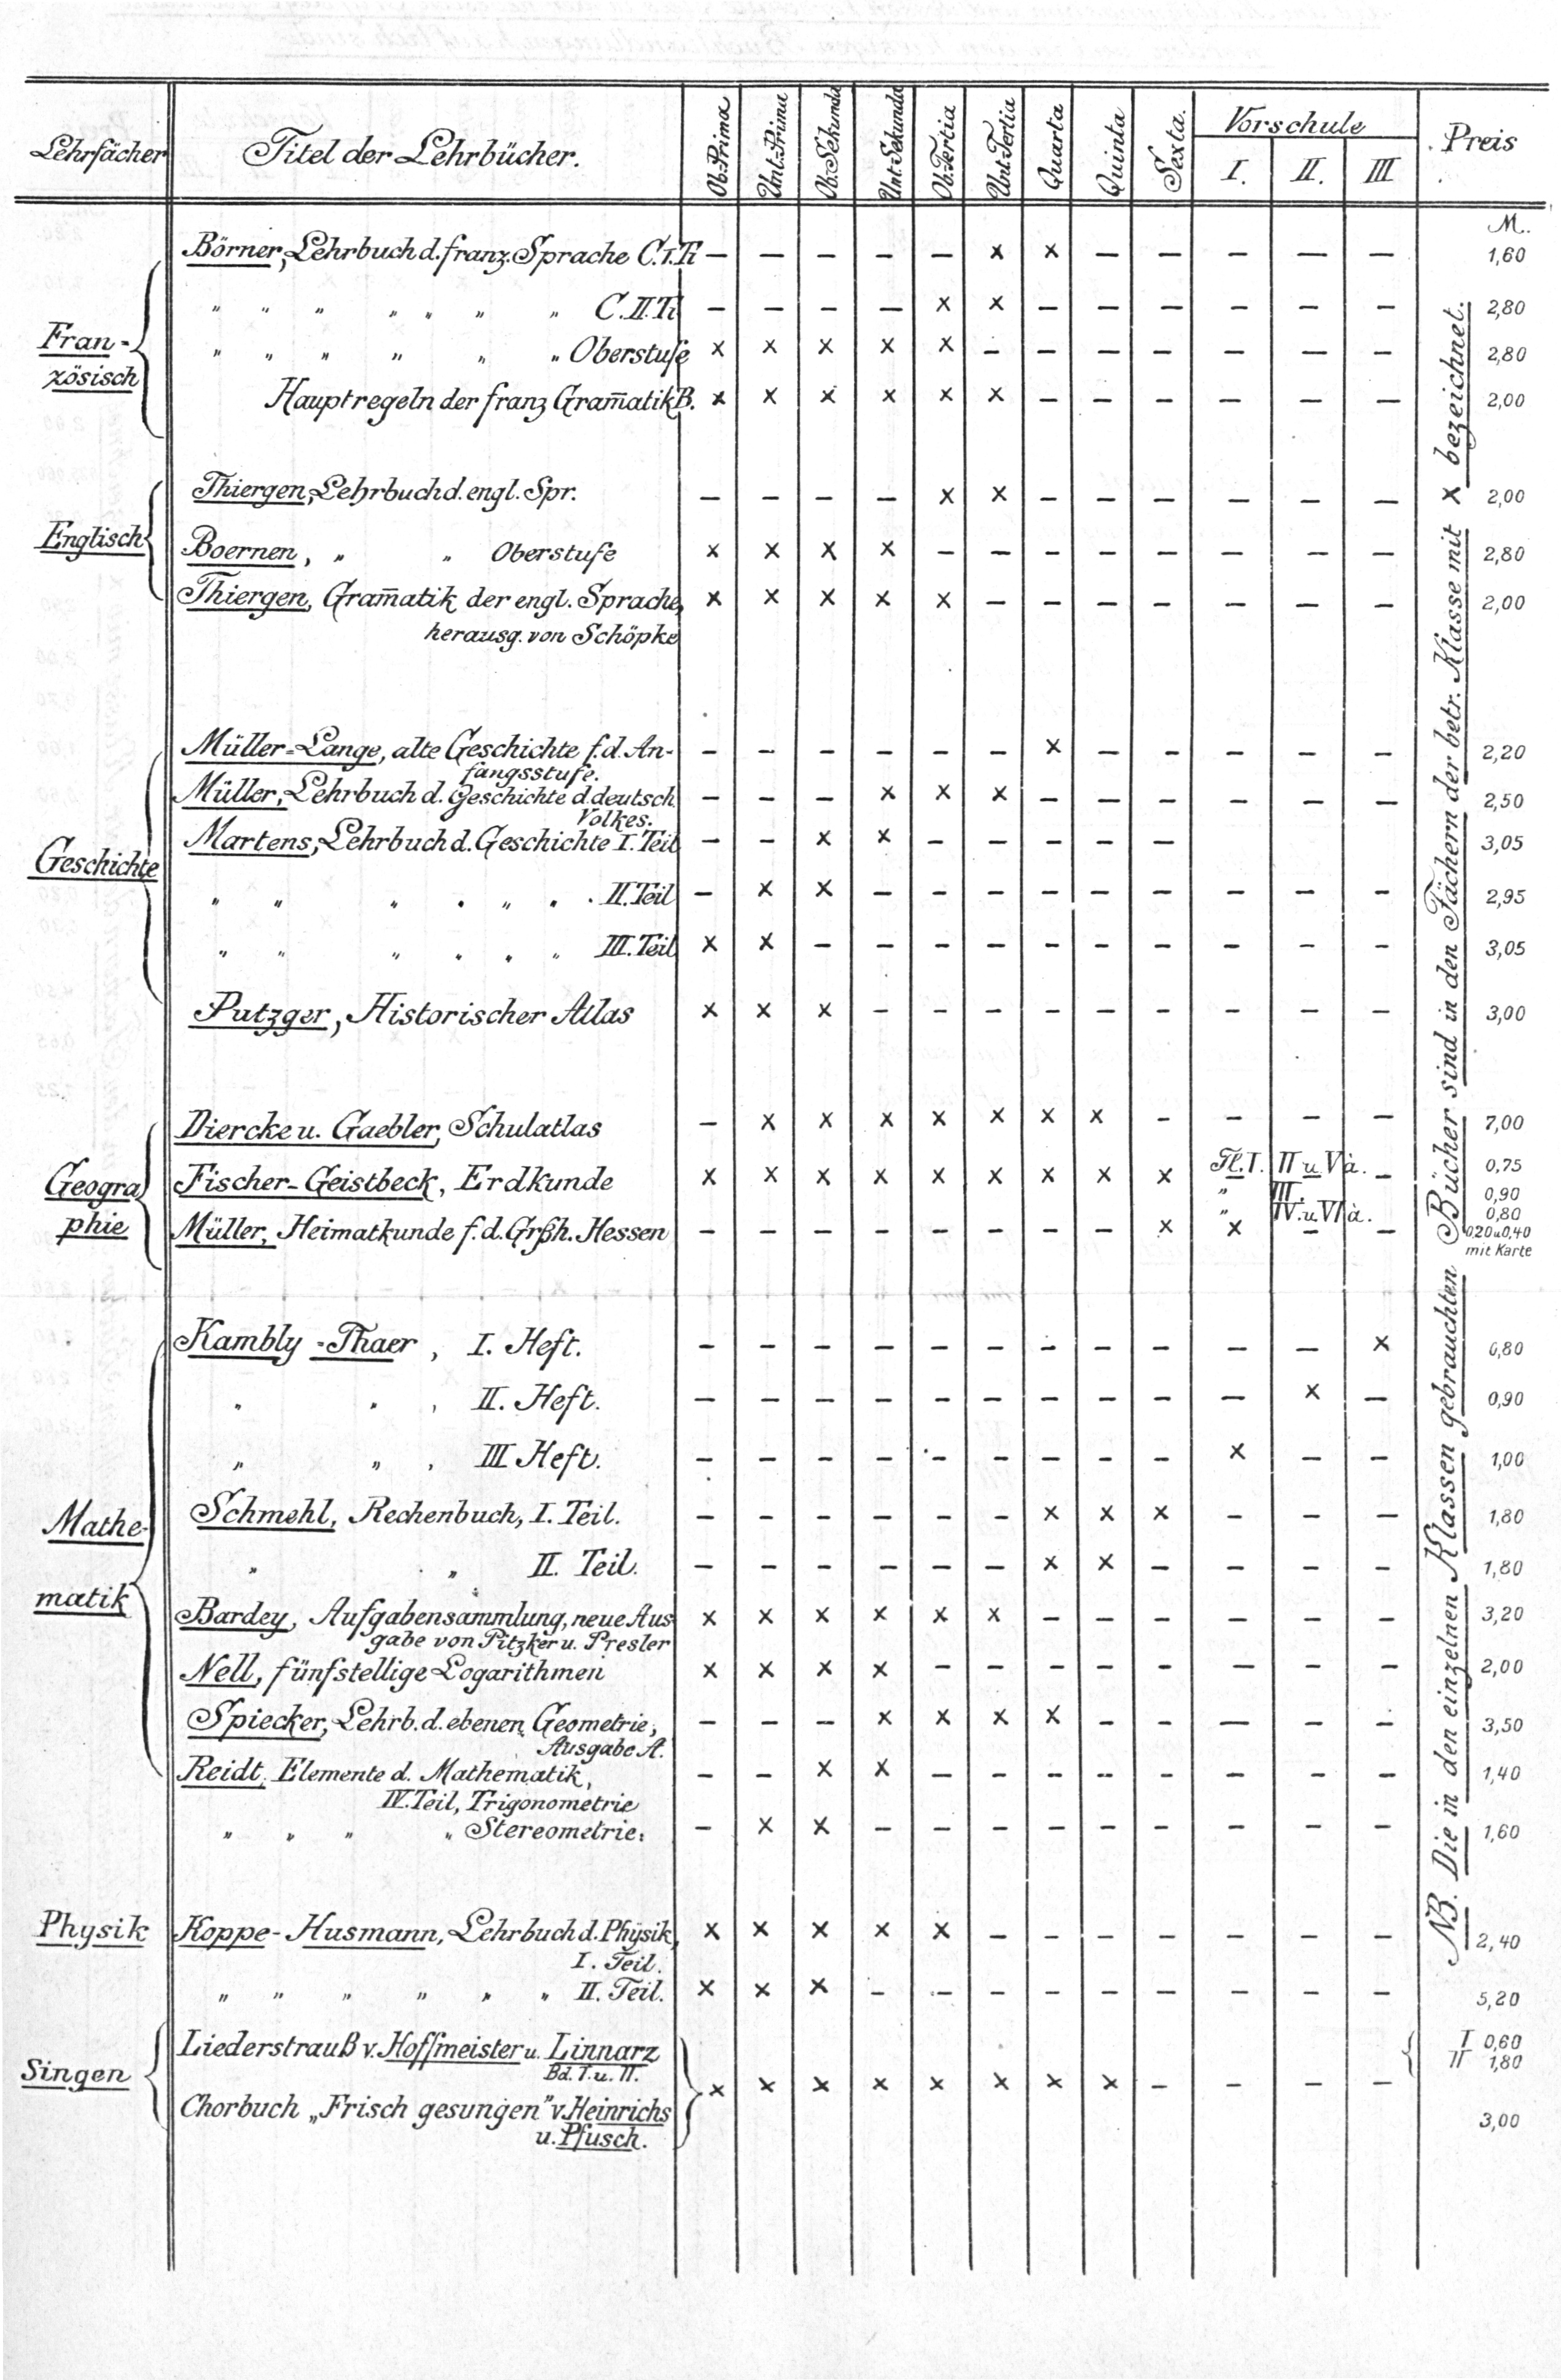 Lehrfächer Titel der Lehrbücher. Ob.Prima Unt.Prima Ob.Sekunda Unt.Sekunda Ob.Tertia Unt.Tertia Quarta Quinta Sexta. Vorschule Preis
I. II. III
M.
Börner, Lehrbuch d. franz. Sprache C.I.Tl — — — — — x x — — — — — 1,60
" " " " " " " C.II.Tl — — — — x x — — — — — — 2,80
Französisch
" " " " " " Oberstufe x x x x x — — — — — — — 2,80
Hauptregeln der franz Gram̄atik B. x x x x x x — — — — — — 2,00
Thiergen, Lehrbuch d. engl. Spr. — — — — x x — — — — — — 2,00
Englisch
Boernen, " " Oberstufe x x x x — — — — — — — — 2,80
Thiergen, Gram̄atik der engl. Sprache, x x x x x — — — — — — — 2,00
herausg. von Schöpke
Müller-Lange, alte Geschichte f. d. An- — — — — — — x — — — — — 2,20
fangsstufe.
Müller, Lehrbuch d. Geschichte d. deutsch. — — — x x x — — — — — — 2,50
Volkes.
Martens, Lehrbuch d. Geschichte I. Teil — — x x — — — — — 3,05
Geschichte
" " " " " " . II. Teil — x x — — — — — — — — — 2,95
" " " " " " III. Teil x x — — — — — — — — — — 3,05
Putzger, Historischer Atlas x x x — — — — — — — — — 3,00
Diercke u. Gaebler, Schulatlas — x x x x x x x — — — — 7,00
Geographie
Fischer-Geistbeck, Erdkunde x x x x x x x x x Tl. I. II u. V à. — 0,75
" III. 0,90
" IV. u. VI à. 0,80
Müller, Heimatkunde f. d. Grßh. Hessen — — — — — — — — x x — — 0,20 u 0,40
mit Karte
Kambly-Thaer, I. Heft. — — — — — — — — — — — x 0,80
" " , II. Heft. — — — — — — — — — — x — 0,90
" " , III Heft. — — — — — — — — — x — — 1,00
Mathematik
Schmehl, Rechenbuch, I. Teil. — — — — — — x x x — — — 1,80
" " II. Teil. — — — — — — x x — — — — 1,80
Bardey, Aufgabensammlung, neue Aus x x x x x x — — — — — — 3,20
gabe von Pitzker u. Presler
Nell, fünfstellige Logarithmen x x x x — — — — — — — — 2,00
Spiecker, Lehrb. d. ebenen Geometrie, — — — x x x x — — — — — 3,50
Ausgabe A.
Reidt, Elemente d. Mathematik, — — x x — — — — — — — — 1,40
IV. Teil, Trigonometrie
" " " " Stereometrie. — x x — — — — — — — — — 1,60
Physik Koppe-Husmann, Lehrbuch d. Physik, x x x x x — — — — — — — 2,40
I. Teil.
" " " " " " II. Teil. x x x — — — — — — — — — 5,20
Singen
Liederstrauß v. Hoffmeister u. Linnarz I 0,60
Bd. I. u. II. II 1,80
x x x x x x x x — — — —
Chorbuch „Frisch gesungen" v. Heinrichs 3,00
u. Pfusch.
NB. Die in den einzelnen Klassen gebrauchten Bücher sind in den Fächern der betr. Klasse mit x bezeichnet.